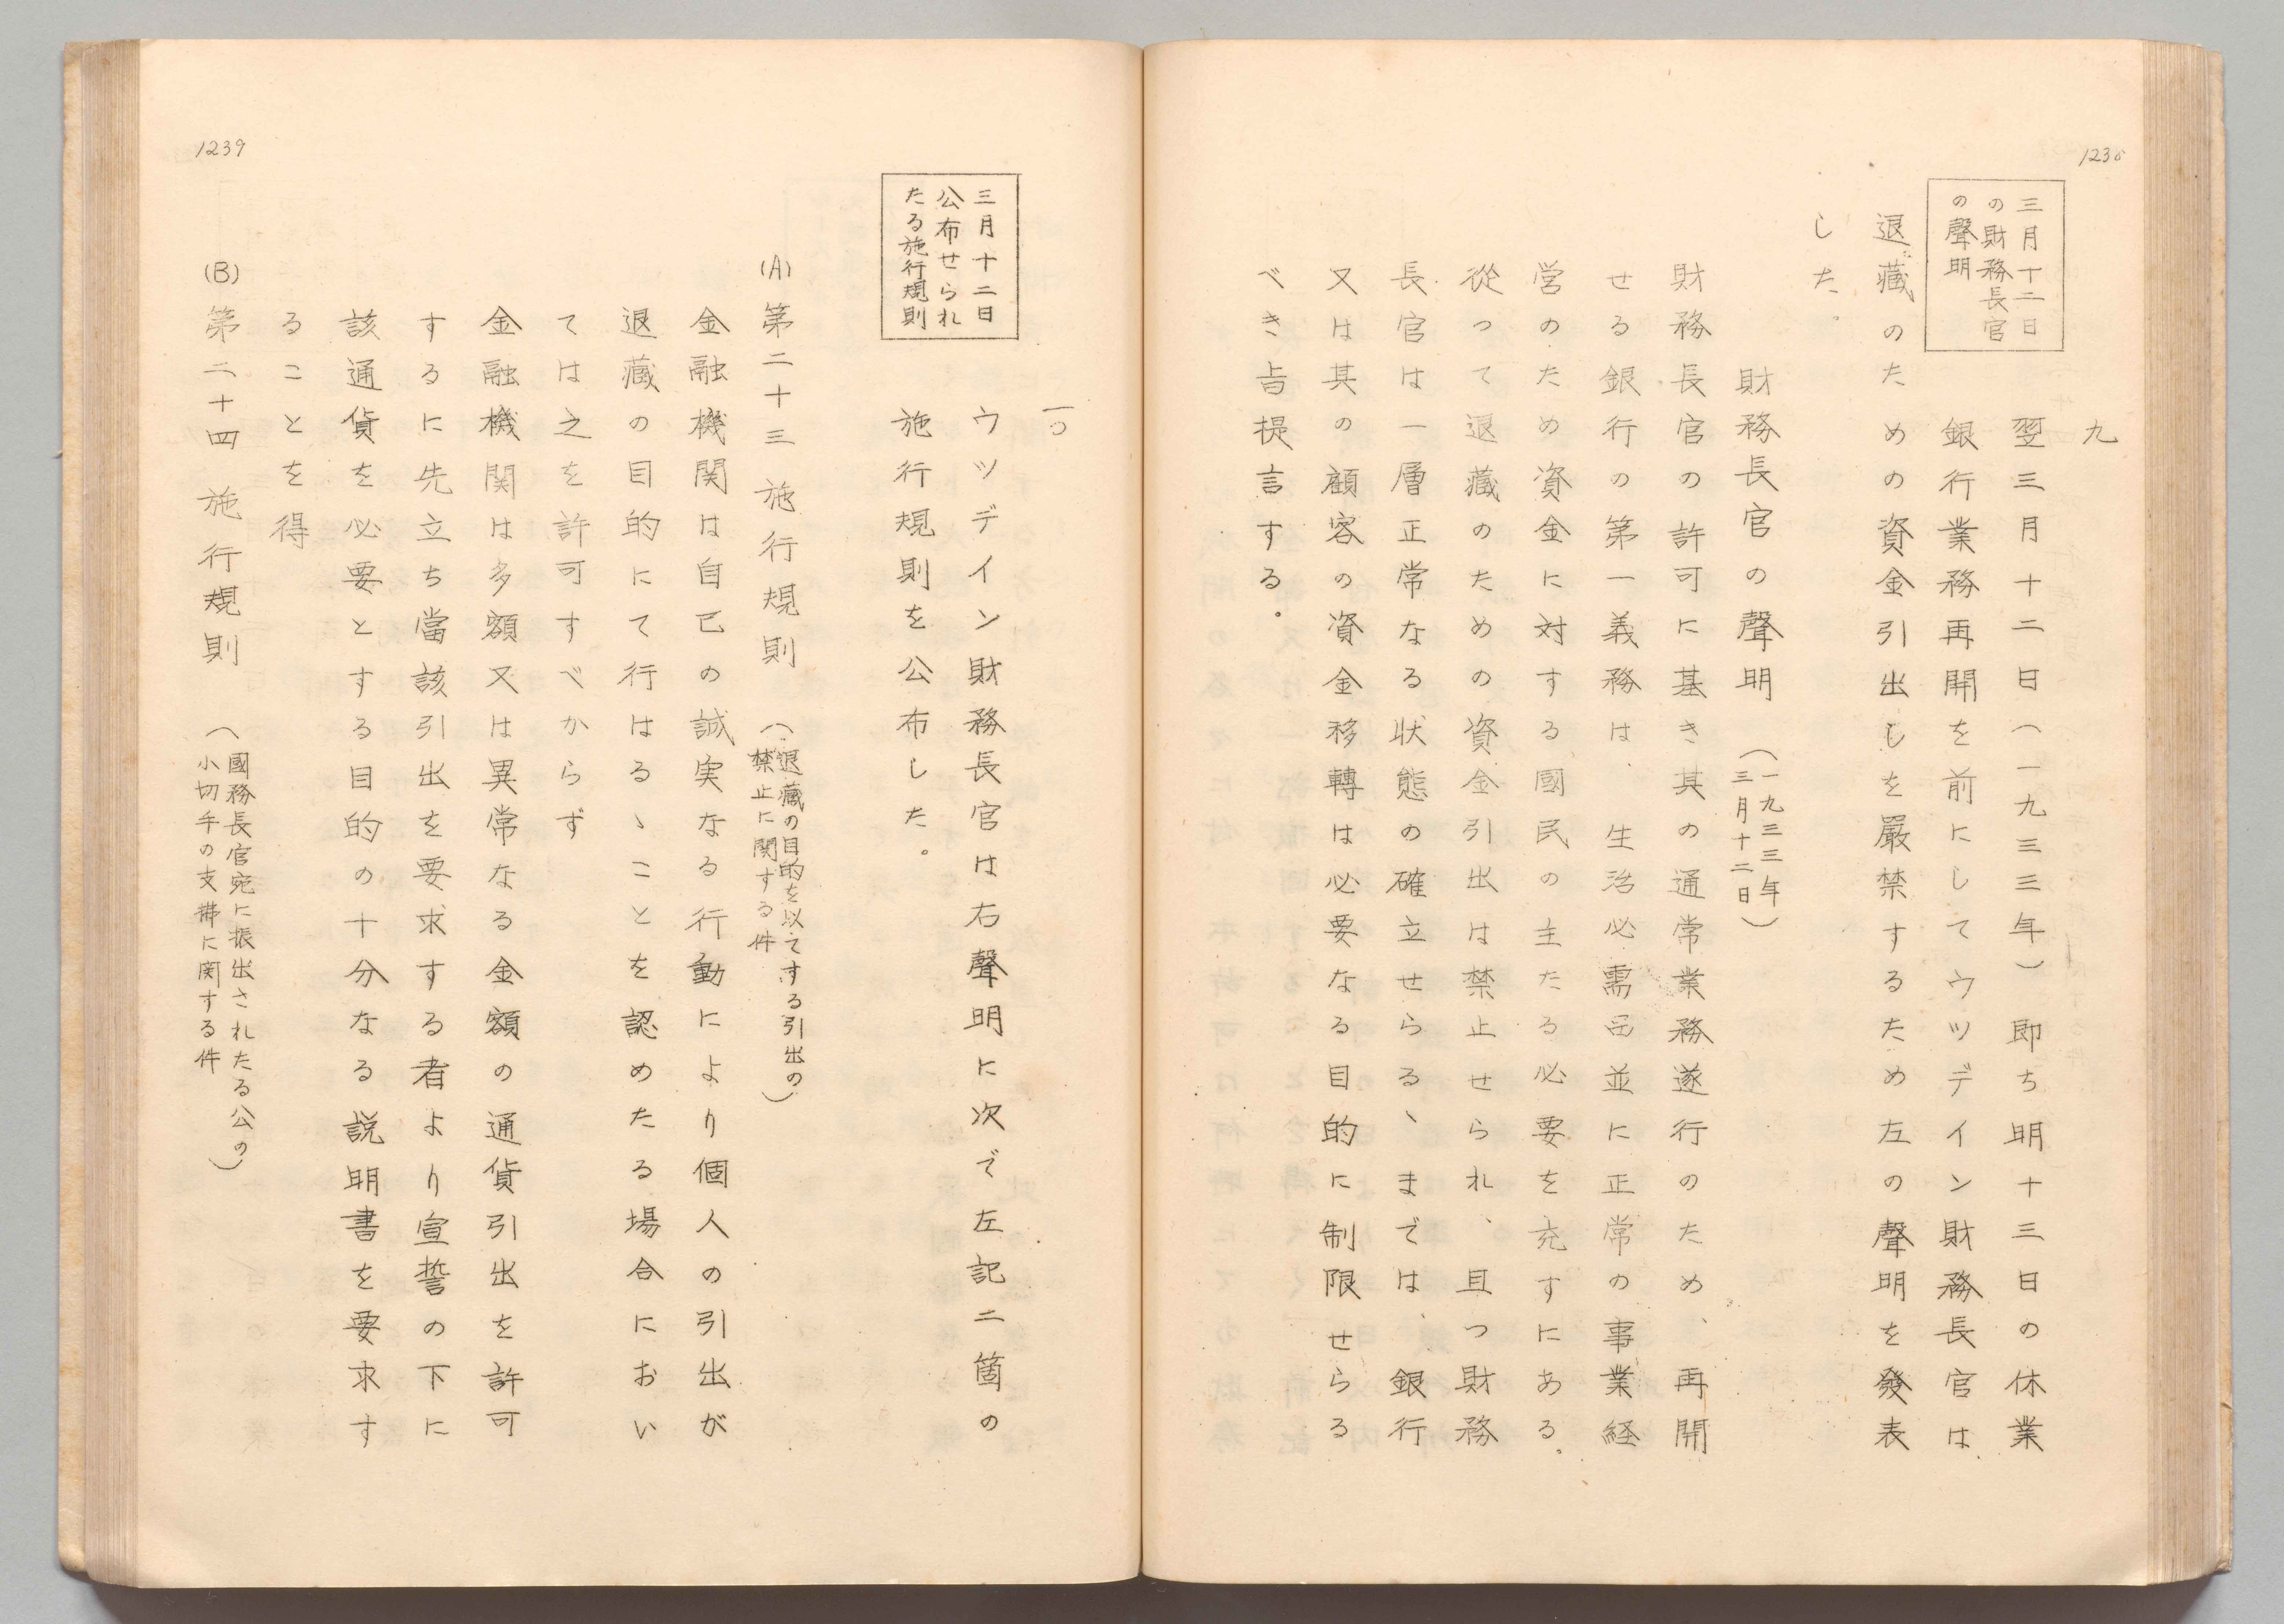 1238
三月十二日
の財務長官
の聲明
九
翌三月十二日(一九三三年)即ち明十三日の休業
銀行業務再開を前にしてウツデイン財務長官は
退藏のための資金引出しを嚴禁するため左の聲明を發表
した。
財務長官の聲明(一九三三年
三月十二日)
財務長官の許可に基き其の通常業務遂行のため、再開
せる銀行の第一義務は、生活必需品並に正常の事業経
営のため資金に対する國民の主たる必要を充すにある。
従つて退藏のための資金引出は禁止せられ、且つ財務
長官は一層正常なる状態の確立せらるゝまでは、銀行
又は其の顧客の資金移轉は必要なる目的に制限せらる
べき旨提言する。
1239
三月十二日
公布せられ
たる施行規則
一〇
ウツデイン財務長官は右聲明に次で左記二箇の
施行規則を公布した。
(A)第二十三施行規則(退藏の目的を以てする引出の
禁止に関する件)
金融機関は自己の誠実なる行動により個人の引出が
退藏の目的にて行はるゝことを認めたる場合におい
ては之を許可すべからず
金融機関は多額又は異常なる金額の通貨引出を許可
するに先立ち當該引出を要求する者より宣誓の下に
該通貨を必要とする目的の十分なる説明書を要求す
ることを得
(B)第二十四施行規則(國務長官宛に振出されたる公の
小切手の支拂に関する件)